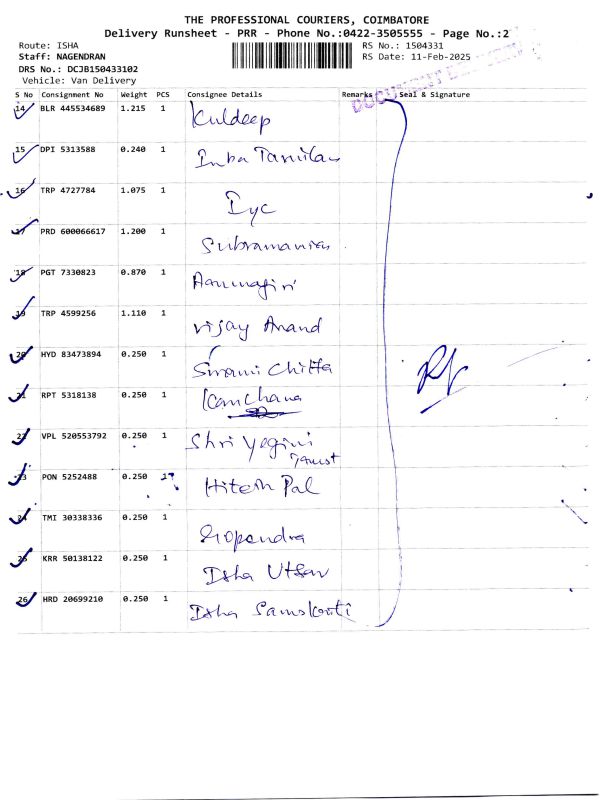 THE PROFESSIONAL COURIERS, COIMBATORE
Delivery Runsheet - PRR - Phone No.:0422-3505555 - Page No.:2
Route: ISHA
RS No.: 1504331
Staff: NAGENDRAN
RS Date: 11-Feb-2025
DRS No.: DCJB150433102
Vehicle: Van Delivery
S No Consignment No Weight PCS Consignee Details Remarks Seal & Signature
14 BLR 445534689 1.215 1 Kuldeep
15 DPI 5313588 0.240 1 Inba Tamilan
16 TRP 4727784 1.075 1 Iyc
17 PRD 600066617 1.200 1 Subramanian
18 PGT 7330823 0.870 1
19 TRP 4599256 1.110 1 Vijay Anand
20 HYD 83473894 0.250 1 Swami Chitta
21 RPT 5318138 0.250 1 Kanchana
22 VPL 520553792 0.250 1 Shri Yogini
Trust
23 PON 5252488 0.250 1 Hitesh Pal
24 TMI 30338336 0.250 1 Gopendra
25 KRR 50138122 0.250 1 Isha Utsav
26 HRD 20699210 0.250 1 Isha Samskriti